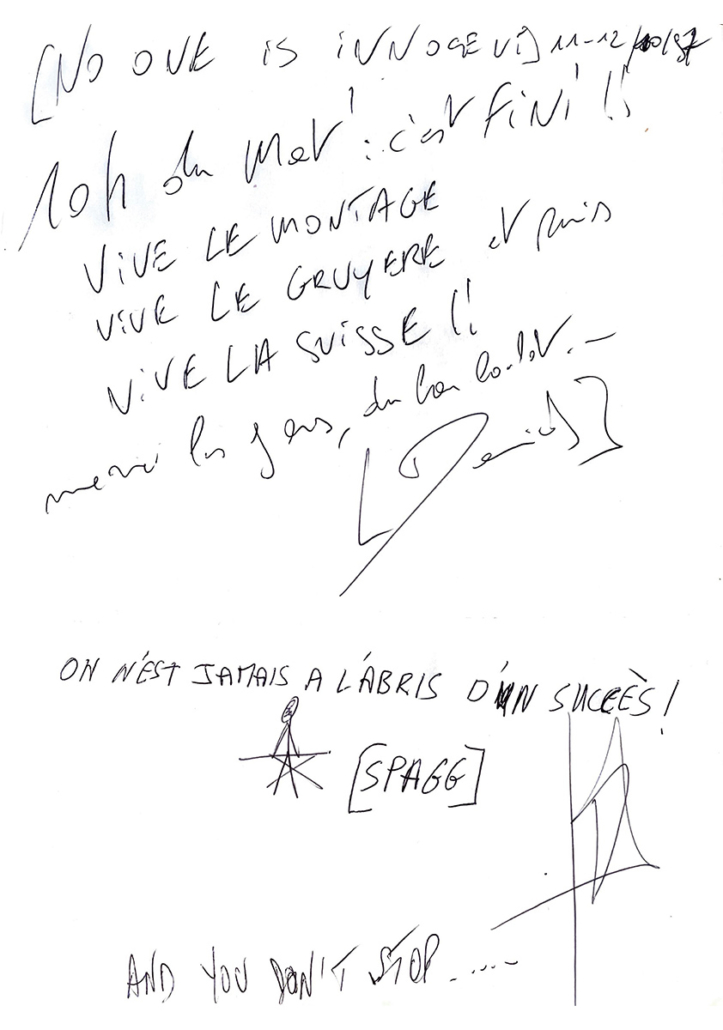 [NO ONE IS INNOCENT] 11-12/10/97
10h du mat' : c'est FiNi !!
ViVE LE MONTAGE
ViVE LE GRUYERE et puis
ViVE LA SUiSSE !!
merci les gens, du bon boulot. –
[Daniel]
ON N'EST JAMAIS A L'ABRIS D'UN SUCCÈS !
[SPAGG]
AND YOU DON'T STOP......